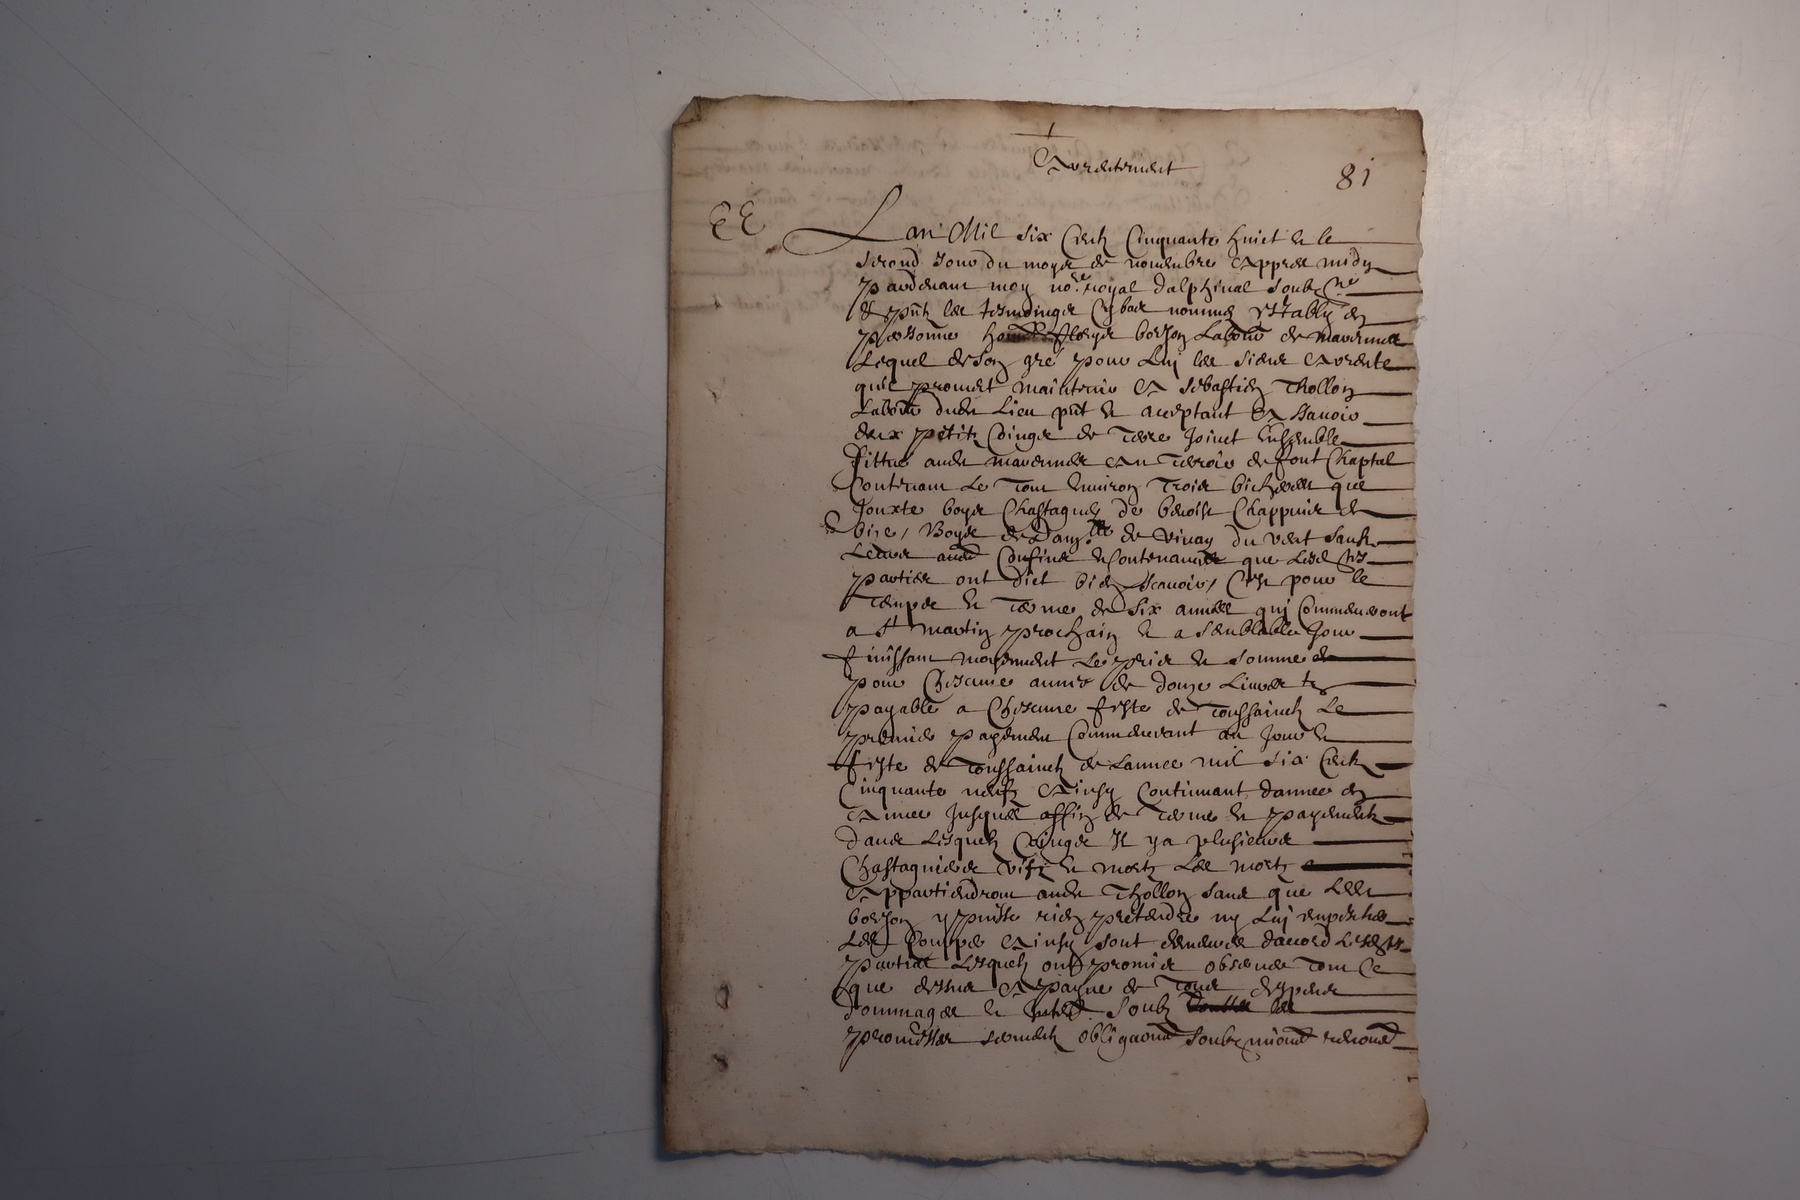 Arrentement
81
EE
Lan Mil six Centz Cinquante huict & le
second Jour du moys de novembre Appres midy
pardevant moy no.re royal dalphinal soubzne
& pnt les tesmoingz Cy bas nommes estably en
personne borjon Labour de
Lequel de son gre pour Luy les siens Arrente
quil promet maintenir A sebastien Thollon
Labour dudt Lieu pnt & acceptant A scavoir
deux petitz Coings de terre Joinct Ensemble
sittue audt au terroir de font Chaptal
Contenant Le tout Environ Trois bicherees que
Jouxte boys Chastagnes de benoist Chappuis de
bize, Boys de dam.lle de Vinay du vent sauf
Leurs aud Confins & Contenances que Lesd
parties ont dict bien scavoir, C'est pour le
temps & terme de six annees quj Commenceront
a St martin prochain & a semblable Jour
finissant moyennant Le prix & somme de
pour Chescune annee de douze Livres ts
payable a Chescune feste de toussainctz Le
premier payement Commencant au Jour &
feste de toussainctz de Lannee mil six Centz
Cinquante neufz Ainsy Continuant dannee en
Annee Jusques affin de terme & payementz
dans Lesquelz Coings Il y a plusieurs
Chastagniers vifz & mortz Les mortz
Appartiendront audt Thollon sans que Ledt
borjon y puisse rien pretendre ny Luy empescher
Les Couppes Ainsy sont demeures daccord Lesdtes
parties Lesquelz ont promis observer tout Ce
que dessus A payne de tous despens
dommages & soubz les
promesses sermentz obligaons soubzmions renons